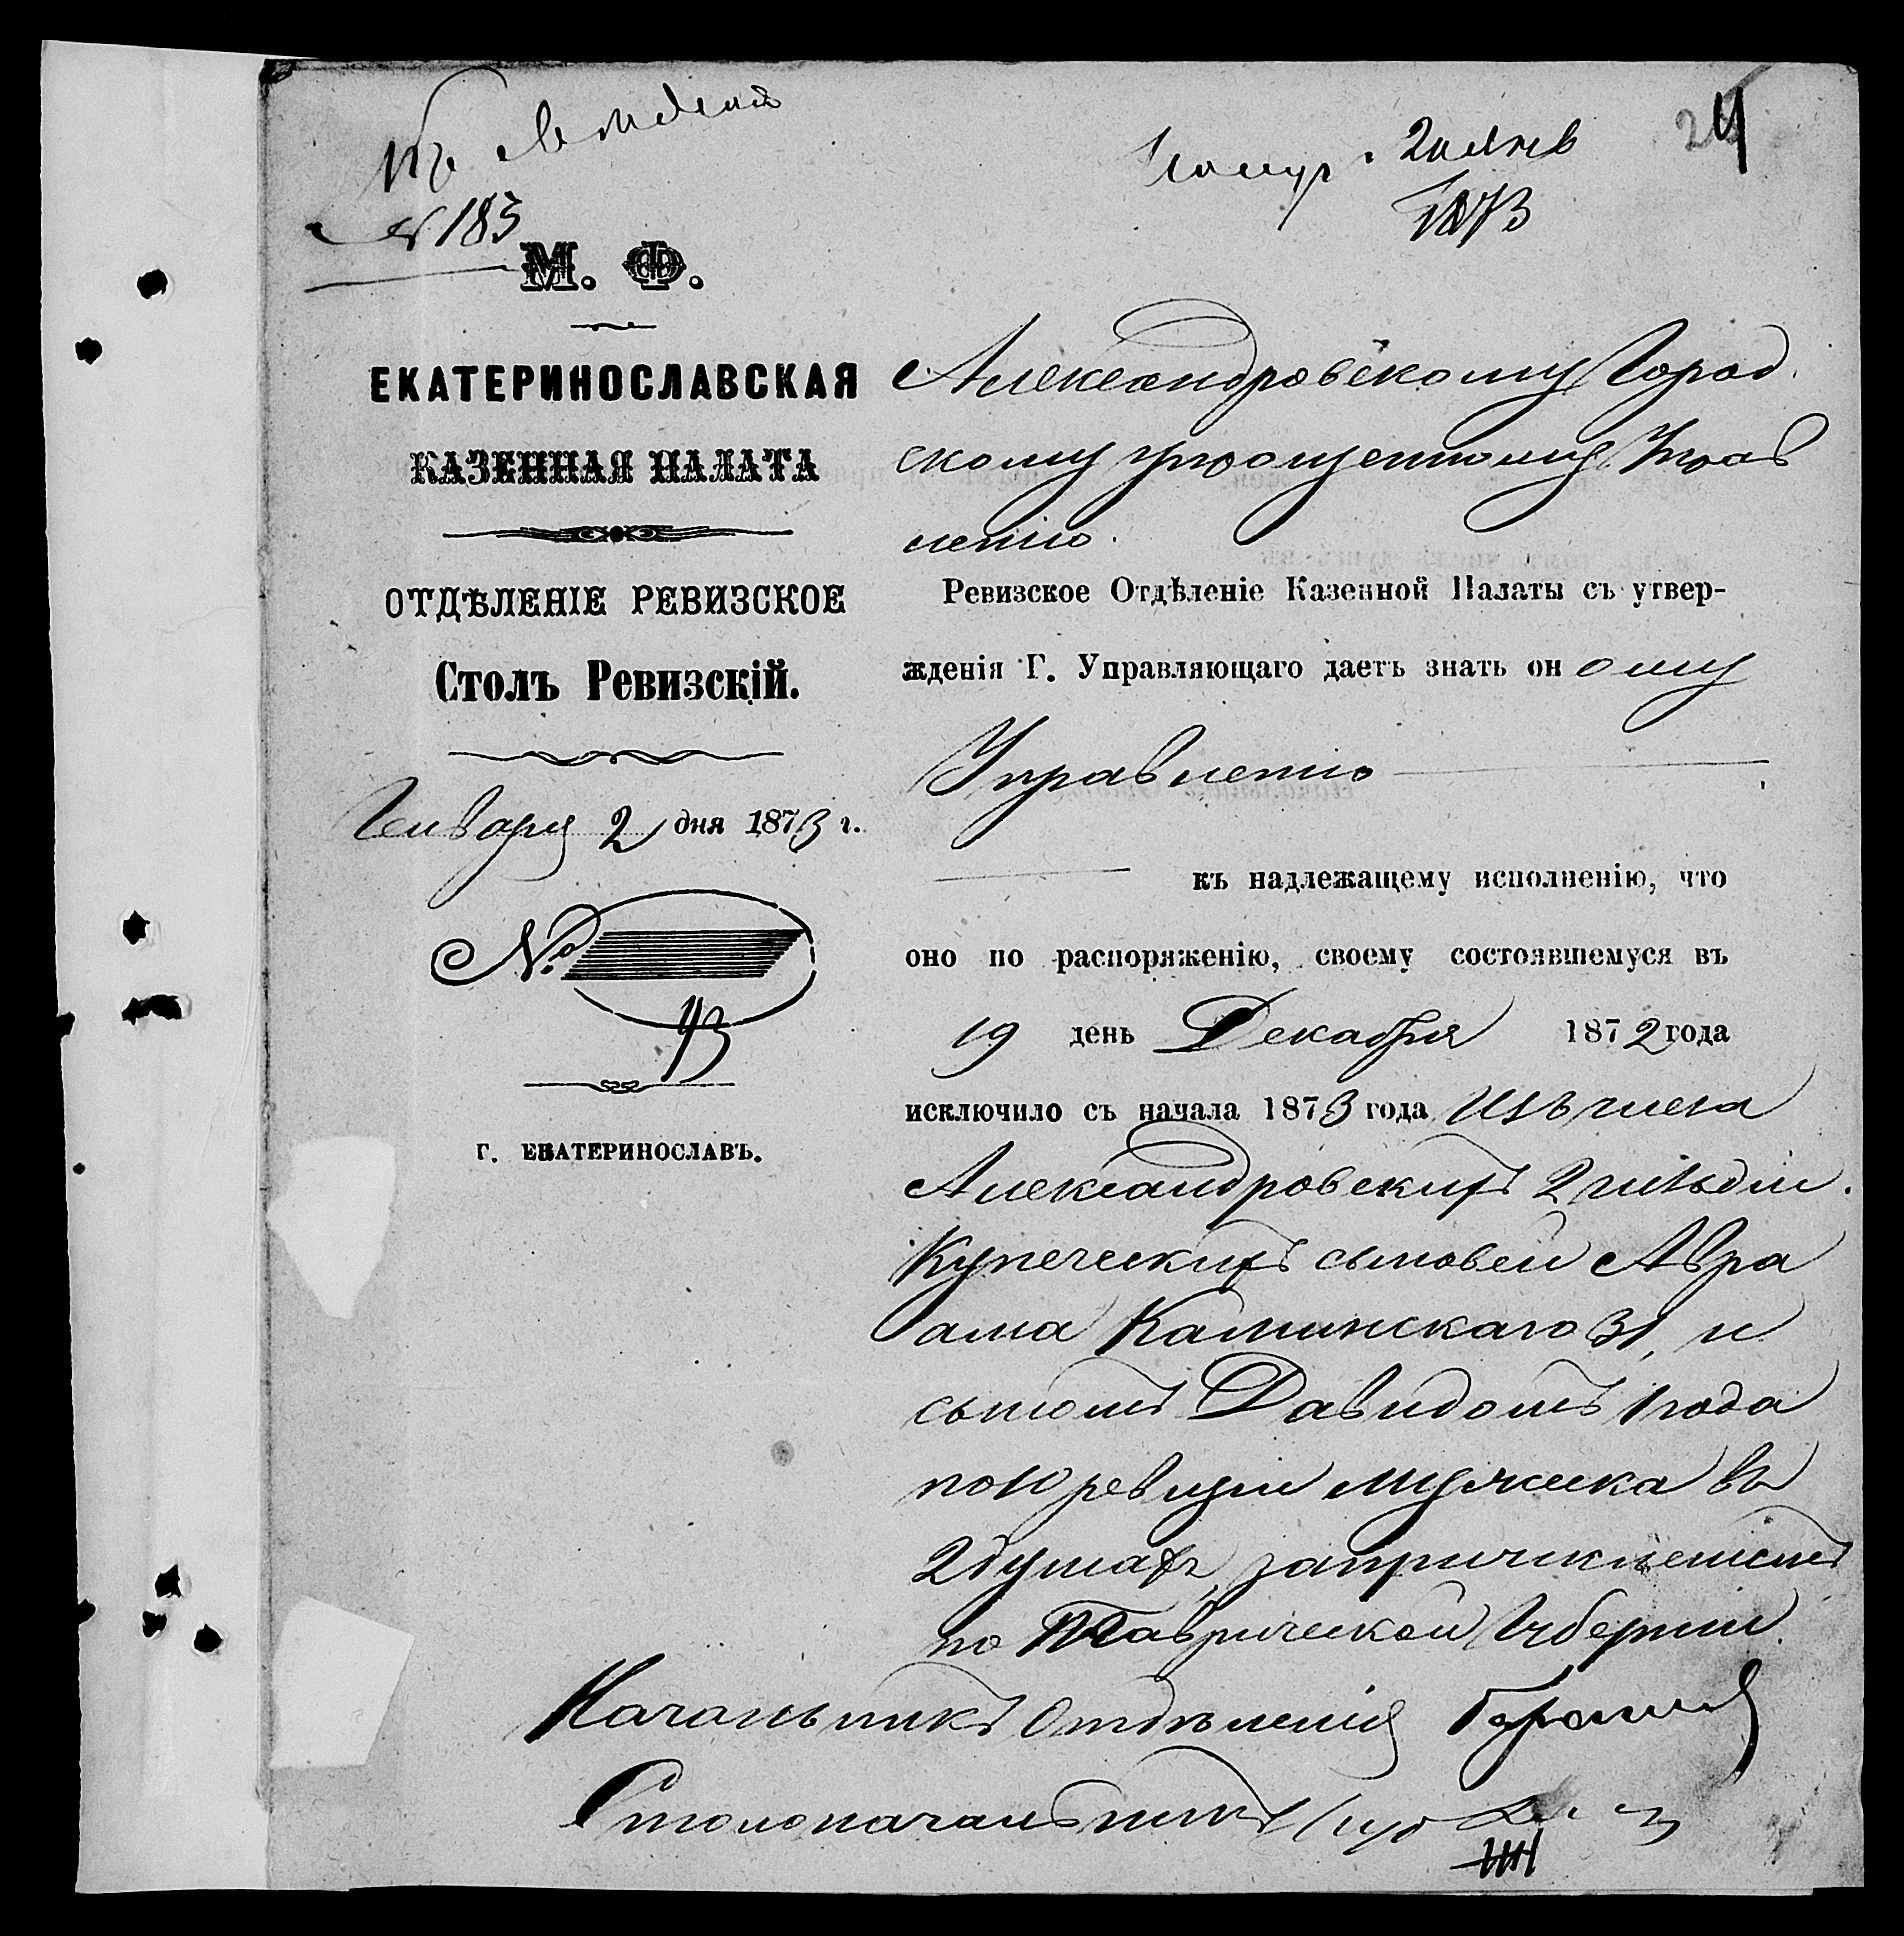 Къ свѣдѣнію
№ 183
Получ. 20 Янв
1873
24
М. Ф.
ЕКАТЕРИНОСЛАВСКАЯ
КАЗЕННАЯ ПАЛАТА
ОТДѢЛЕНІЕ РЕВИЗСКОЕ
Столъ Ревизскій.
Генваря 2 дня 1873 г.
№
43
г. ЕКАТЕРИНОСЛАВЪ.
Александровскому Город
скому упрощенному Прав
ленію.
Ревизское Отдѣленіе Казенной Палаты съ утвер-
жденія Г. Управляющаго даетъ знать оному
Управленію
къ надлежащему исполненію, что
оно по распоряженію, своему состоявшемуся въ
19 день Декабря 1872 года
исключило съ начала 1873 года изъ числа
Александровскихъ 2 гильдіи
Купеческихъ сыновей Авра
ама Каминскаго 31, и
сыномъ Давидомъ 1 года
по 10 ревизіи мужеска въ
2 душахъ, за причисленіемъ
по Таврической Губерніи.
Начальникъ Отдѣленія
Столоначальникъ